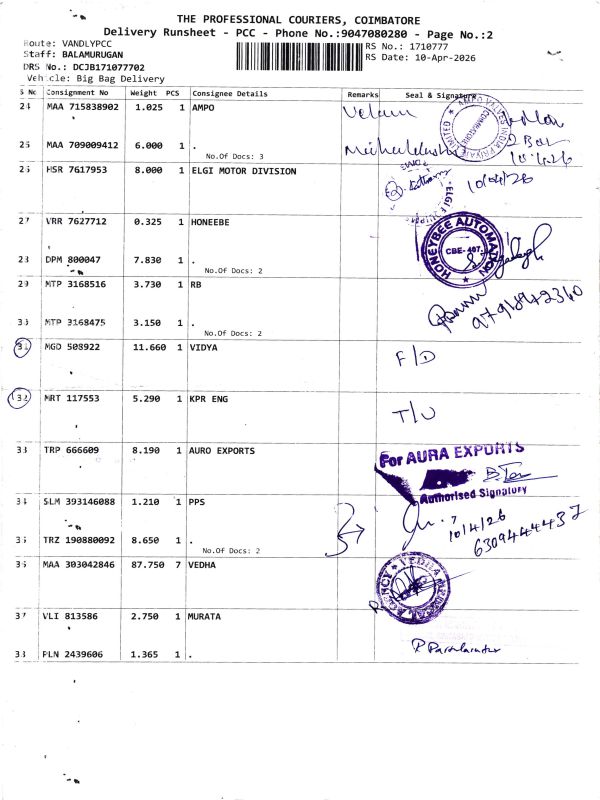 THE PROFESSIONAL COURIERS, COIMBATORE
Delivery Runsheet - PCC - Phone No.:9047080280 - Page No.:2
Route: VANDLYPCC
RS No.: 1710777
Staff: BALAMURUGAN
RS Date: 10-Apr-2026
DRS No.: DCJB171077702
Vehicle: Big Bag Delivery
S No Consignment No Weight PCS Consignee Details Remarks Seal & Signature
24 MAA 715838902 1.025 1 AMPO
25 MAA 709009412 6.000 1 .
No.Of Docs: 3
10/4/26
26 HSR 7617953 8.000 1 ELGI MOTOR DIVISION
10/04/26
27 VRR 7627712 0.325 1 HONEEBE
HONEYBEE AUTOMATION
CBE-407.
28 DPM 800047 7.830 1 .
No.Of Docs: 2
29 MTP 3168516 3.730 1 RB
30 MTP 3168475 3.150 1 .
No.Of Docs: 2
31 MGD 508922 11.660 1 VIDYA F/D
32 MRT 117553 5.290 1 KPR ENG T/U
33 TRP 666609 8.190 1 AURO EXPORTS
For AURA EXPORTS
Authorised Signatory
34 SLM 393146088 1.210 1 PPS
10/4/26
6309444432
35 TRZ 190880092 8.650 1 .
No.Of Docs: 2
36 MAA 303042846 87.750 7 VEDHA
37 VLI 813586 2.750 1 MURATA
38 PLN 2439606 1.365 1 .